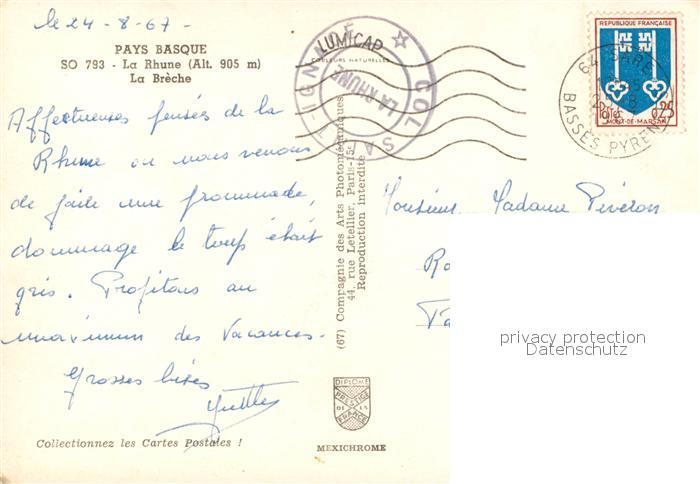 le 24-8-67-
PAYS BASQUE
SO 793 - La Rhune (Alt. 905 m)
La Brèche
LUMICAP
COULEURS NATURELLES
Affectueuses pensées de la
Rhune ou nous venons
de faire une promenade,
dommage le temps était
gris. Profitons au
maximum des vacances.
Grosses bises
Yvette
Collectionnez les Cartes Postales !
(67) Compagnie des Arts Photomécaniques
44, rue Letellier, Paris-15e
Reproduction Interdite
COL S IGNACE
LA RHUNE
REPUBLIQUE FRANÇAISE
Postes 0,25
MONT-DE-MARSAN
64 SARE
BASSES PYRENEES
Monsieur, Madame Péveron
privacy protection
Datenschutz
DIPLOME
PRESTIGE
DE LA
FRANCE
MEXICHROME